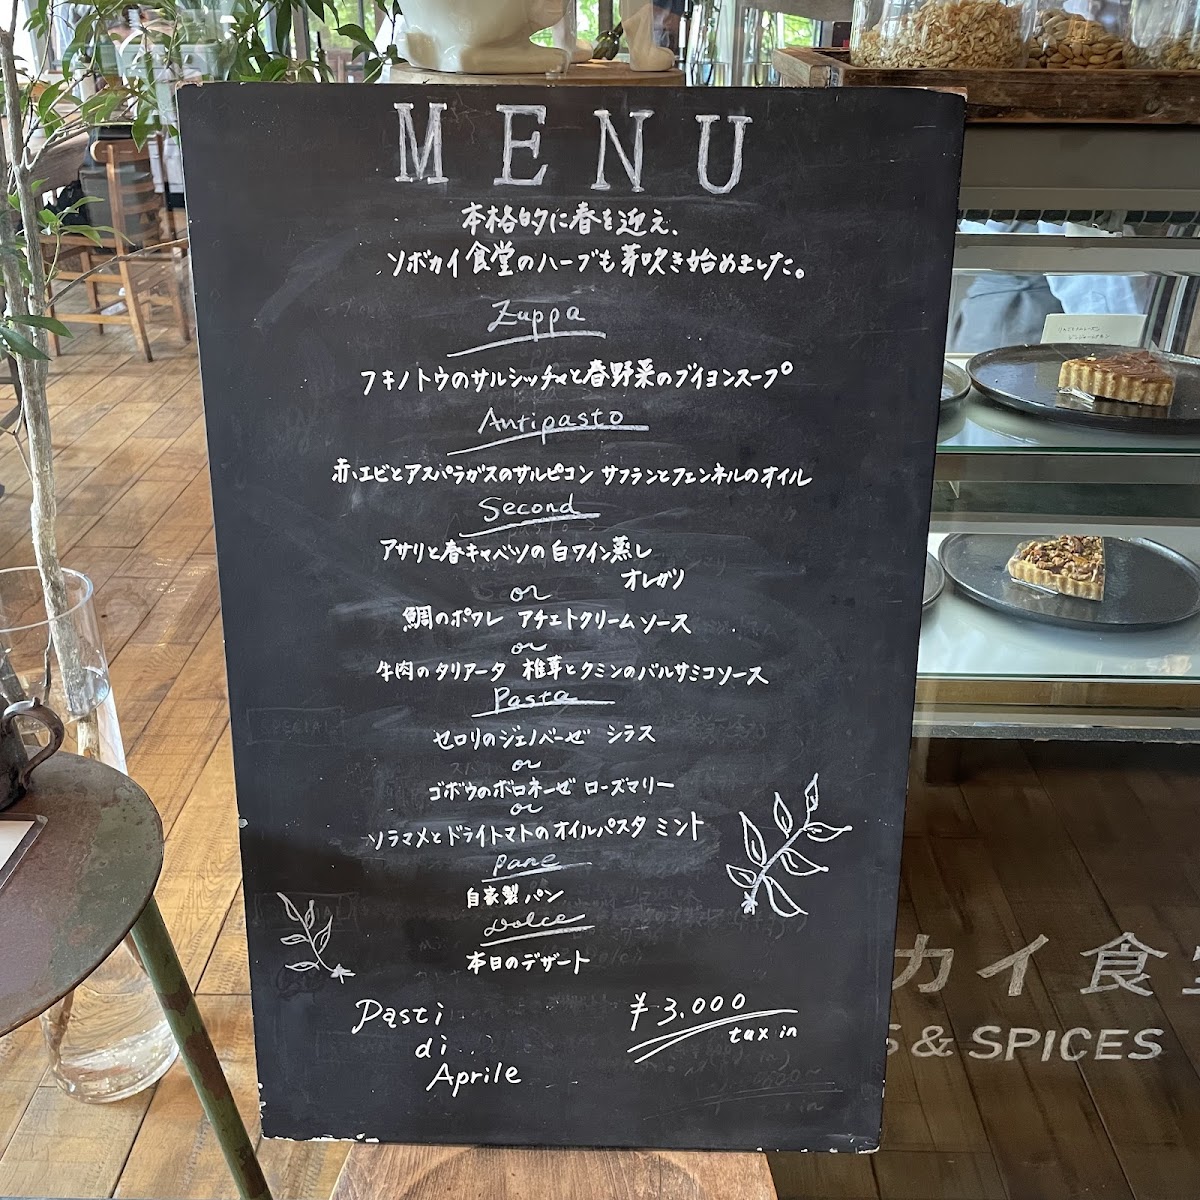 MENU
本格的に春を迎え、
ソボカイ食堂のハーブも芽吹き始めました。
Zuppa
フキノトウのサルシッチャと春野菜のブイヨンスープ
Antipasto
赤エビとアスパラガスのサルピコン サフランとフェンネルのオイル
Second
アサリと春キャベツの白ワイン蒸し
オレガノ
or
鯛のポワレ アチェトクリームソース
or
牛肉のタリアータ 椎茸とクミンのバルサミコソース
Pasta
セロリのジェノベーゼ シラス
or
ゴボウのボロネーゼ ローズマリー
or
ソラマメとドライトマトのオイルパスタ ミント
Pane
自家製パン
Dolce
本日のデザート
Pasti
di
Aprile
¥3.000
tax in
カイ食堂
S & SPICES